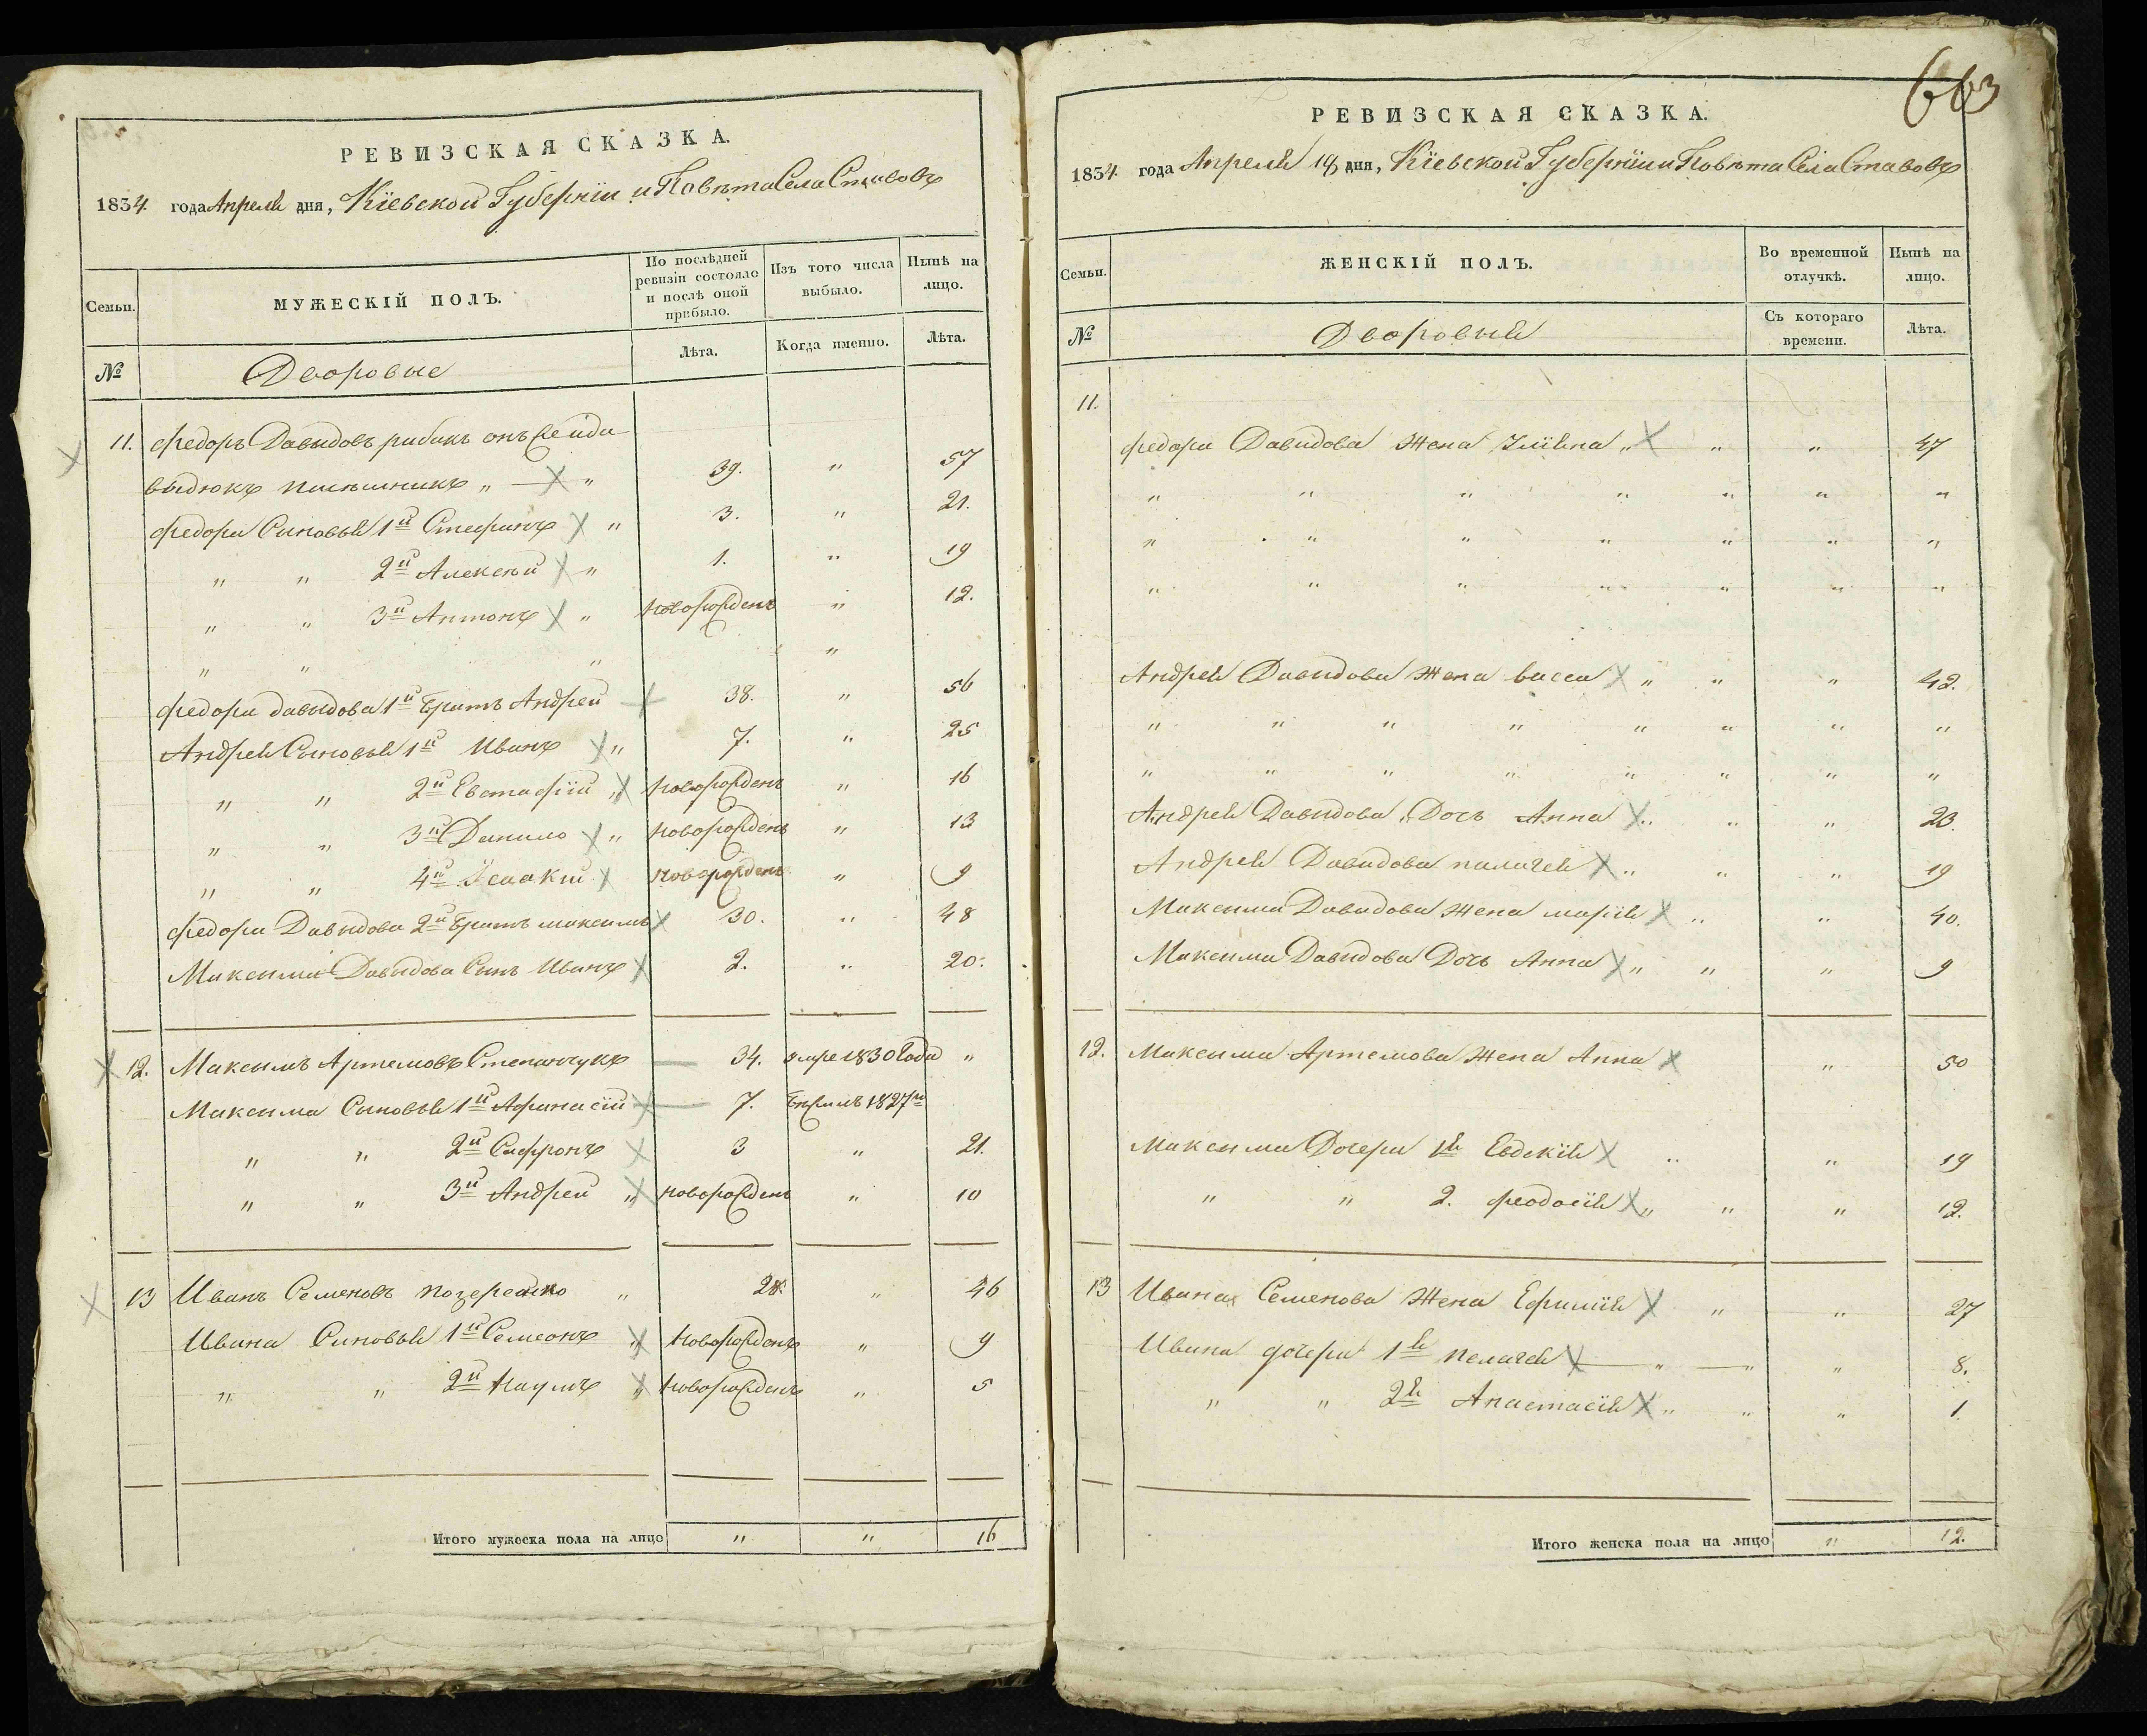 РЕВИЗСКАЯ СКАЗКА.
1834 года Апреля дня, Кіевской Губерніи и Повѣта Села Ставовъ
Семьи.
МУЖЕСКІЙ ПОЛЪ.
По послѣдней ревизіи состояло и послѣ оной прибыло.
Изъ того числа выбыло.
Нынѣ на лицо.
№
Дворовые
Лѣта.
Когда именно.
Лѣта.
11. Федоръ Давыдовъ рибакъ онъ
39. " 57
Федора Сыновья 1й Стефанъ " 3. " 21.
" " 2й Алексѣй " 1. " 19
" " 3й Антонъ " новорожденъ " 12.
" " " "
Федора давыдова 1й Братъ Андрей 38. " 56
Андрея Сыновья 1й Иванъ " 7. " 25
" " 2й Евстафій " новорожденъ " 16
" " 3й Данило " новорожденъ " 13
" " 4й Ісаакій новорожденъ " 9
Федора Давыдова 2й Братъ максимъ 30. " 48
Максима Давыдова Сынъ Иванъ 2. " 20.
12. Максимъ Артемовъ Степанчукъ 34. умре 1830 Года "
Максима Сыновья 1й Афанасій 7. Бѣжалъ 1827го
" " 2й Сафронъ 3 " 21.
" " 3й Андрей " новорожденъ " 10
13 Иванъ Семеновъ " 28. " 46
Ивана Сыновья 1й Семеонъ " Новорожденъ " 9
" " 2й Наумъ " Новорожденъ " 5
Итого мужеска пола на лицо " " 16
663
РЕВИЗСКАЯ СКАЗКА.
1834 года Апреля 18 дня, Кіевской Губерніи и Повѣта Села Ставовъ
Семьи.
ЖЕНСКІЙ ПОЛЪ.
Во временной отлучкѣ.
Нынѣ на лицо.
№
Дворовыя
Съ котораго времени.
Лѣта.
11.
Федора Давидова Жена Уліяна " " " 47
" " " " " " "
" " " " " " "
" " " " " " "
Андрея Давидова Жена васса " " " 42.
" " " " " " " "
" " " " " " " "
Андрея Давидова Дочь Анна " " " 23.
Андрея Давидова палагея " " " 19
Максима Давидова Жена марія " " 40.
Максима Давидова Дочь Анна " " " 9
12. Максима Артемова Жена Анна " 50
Максима Дочери 1я Евдокія " " 19
" " 2. феодосія " " " 12.
13 Ивана Семенова Жена Ефимія " " 27
Ивана дочери 1я пелагея " " " 8.
" " 2я Анастасія " " " 1.
Итого женска пола на лицо " 12.